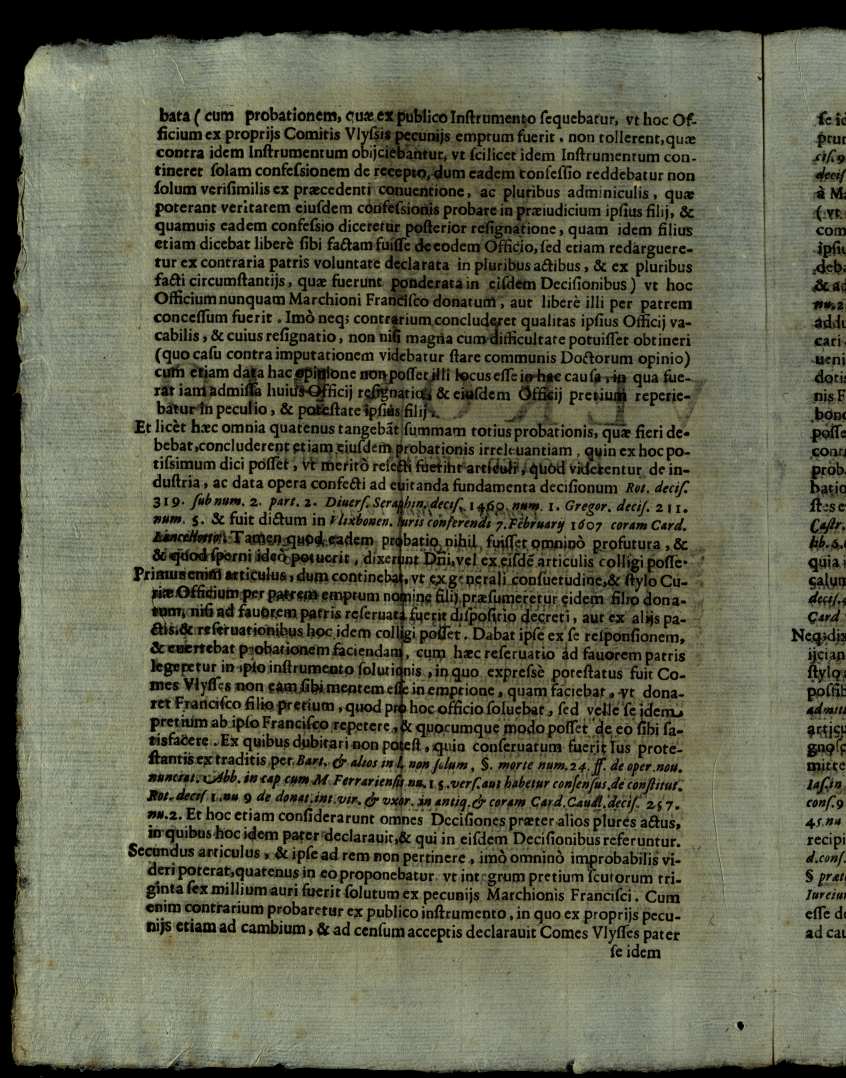 bata ( cum probationem, quæ ex publico Instrumento sequebatur, vt hoc Of-
ficium ex proprijs Comitis Vlyssis pecunijs emptum fuerit . non tollerent, quæ
contra idem Instrumentum obijciebantur, vt scilicet idem Instrumentum con-
tineret solam confessionem de recepto, dum eadem confessio reddebatur non
solum verisimilis ex præcedenti conuentione, ac pluribus adminiculis, quæ
poterant veritatem eiusdem confessionis probare in præiudicium ipsius filij, &
quamuis eadem confessio diceretur posterior resignatione, quam idem filius
etiam dicebat liberè sibi factam fuisse de eodem Officio, sed etiam redarguere-
tur ex contraria patris voluntate declarata in pluribus actibus, & ex pluribus
facti circumstantijs, quæ fuerunt ponderata in eisdem Decisionibus ) vt hoc
Officium nunquam Marchioni Francisco donatum, aut liberè illi per patrem
concessum fuerit . Imò neq; contrarium concluderet qualitas ipsius Officij va-
cabilis, & cuius resignatio, non nisi magna cum difficultate potuisset obtineri
(quo casu contra imputationem videbatur stare communis Doctorum opinio)
cum etiam data hac opinione non posset illi locus esse in hac causa, in qua fue-
rat iam admissa huius Officij resignatio, & eiusdem Officij pretium reperie-
batur in peculio, & potestate ipsius filij .
Et licèt hæc omnia quatenus tangebāt summam totius probationis, quæ fieri de-
bebat, concluderent etiam eiusdem probationis irreleuantiam, quin ex hoc po-
tissimum dici posset, vt meritò reiecti fuerint articuli, quòd viderentur de in-
dustria, ac data opera confecti ad euitanda fundamenta decisionum Rot. decis.
319. sub num. 2. part. 2. Diuers. Seraphin. decis. 1460. num. 1. Gregor. decis. 211.
num. 5. & fuit dictum in Vlixbonen. Iuris conferendi 7. Februarij 1607 coram Card.
Lancellotto. Tamen quod eadem probatio nihil fuisset omninò profutura, &
& quod sperni ideò potuerit, dixerunt Dñi, vel ex eisdē articulis colligi posse.
Primus enim articulus, dum continebat, vt ex generali consuetudine, & stylo Cu-
riæ Officium per patrem emptum nomine filij præsumeretur eidem filio dona-
tum, nisi ad fauorem patris reseruata fuerit dispositio decreti, aut ex alijs pa-
ctis, & reseruationibus hoc idem colligi posset. Dabat ipse ex se responsionem,
& euertebat probationem faciendam, cum hæc reseruatio ad fauorem patris
legeretur in ipso instrumento solutionis, in quo expressè potestatus fuit Co-
mes Vlysses non eam sibi mentem esse in emptione, quam faciebat, vt dona-
ret Francisco filio pretium, quod pro hoc officio soluebat, sed velle se idem
pretium ab ipso Francisco repetere, & quocumque modo posset de eo sibi sa-
tisfacere . Ex quibus dubitari non potest, quin conseruatum fuerit Ius prote-
stantis ex traditis per Bart. & alios in l. non solum, §. morte num. 24. ff. de oper. nou.
nunciat. Abb. in cap cum M Ferrariensis nu. 15. vers. aut habetur consensus, de constitut.
Rot. decis 1. nu 9 de donat. int. vir. & vxor. in antiq. & coram Card. Caual. decis. 257.
nu. 2. Et hoc etiam considerarunt omnes Decisiones præter alios plures actus,
in quibus hoc idem pater declarauit, & qui in eisdem Decisionibus referuntur.
Secundus articulus, & ipse ad rem non pertinere, imò omninò improbabilis vi-
deri poterat, quatenus in eo proponebatur vt integrum pretium scutorum tri-
ginta sex millium auri fuerit solutum ex pecunijs Marchionis Francisci . Cum
enim contrarium probaretur ex publico instrumento, in quo ex proprijs pecu-
nijs etiam ad cambium, & ad censum acceptis declarauit Comes Vlysses pater
se idem